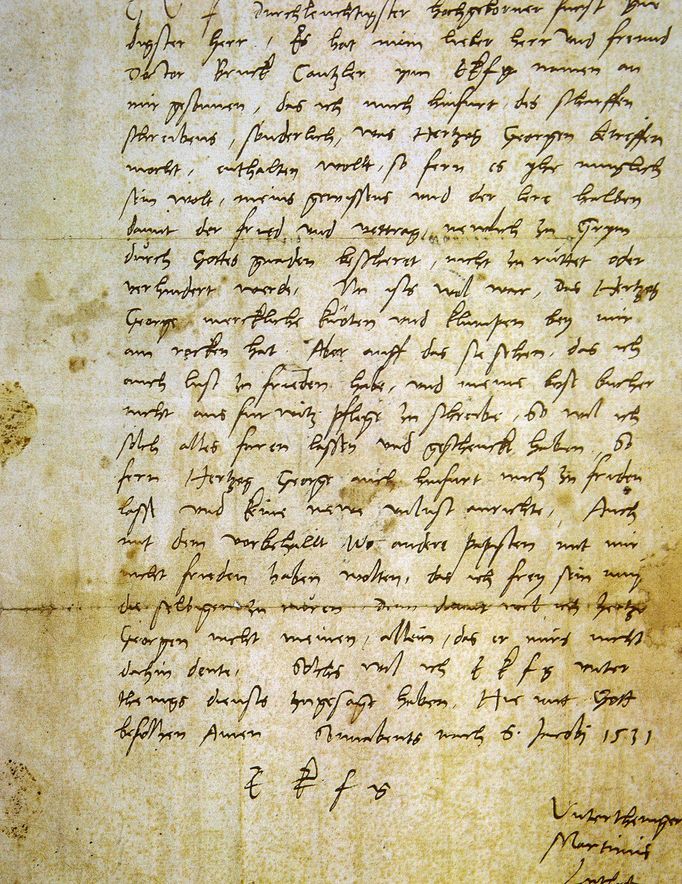 Durchleuchtigster hochgeborner furst gne
digster herr, Es hat mein lieber herr und freund
Doctor Bruck Cantzler ynn EKFG namen an
mir gesonnen, das ich mich hinfurt, des scharffen
schreibens, sonderlich, was Hertzog Georgen betreffen
mocht, enthalten wollt, so fern es yhe muglich
sein wolt, meins gewissens und der lere halben
damit der fried und vertrag, newlich zu Grym
durch Gottes gnaden bescheret, nicht zu ruttet oder
verhindert werde, Nu ists wol war, das Hertzog
George merckliche knoten und klumpen bey mir
am rocken hat Aber auff das sie sehen, das ich
auch lust zu frieden habe, und meine bose bucher
nicht aus furwitz pflege zu schreibe, So wil ich
solch alles faren lassen und geschenckt haben, So
fern Hertzog George auch hinfurt mich zu friden
lasst und keine newe unlust anrichte, Auch
mit dem vorbehallt Wo andere Papisten mit mir
nicht frieden haben wolten, das ich frey sein mug
die selbigen zu Denn damit wil ich Hertzog
Georgen nicht meinen, allein, das er mirs nicht
dahin deute, Solchs wil ich E k f g unter
thenigs diensts zugesagt haben, Hie mit Gott
befolhen Amen Sonnabents nach S. Jacobj 1531
E k f g
Untertheniger
Martinus
Luther